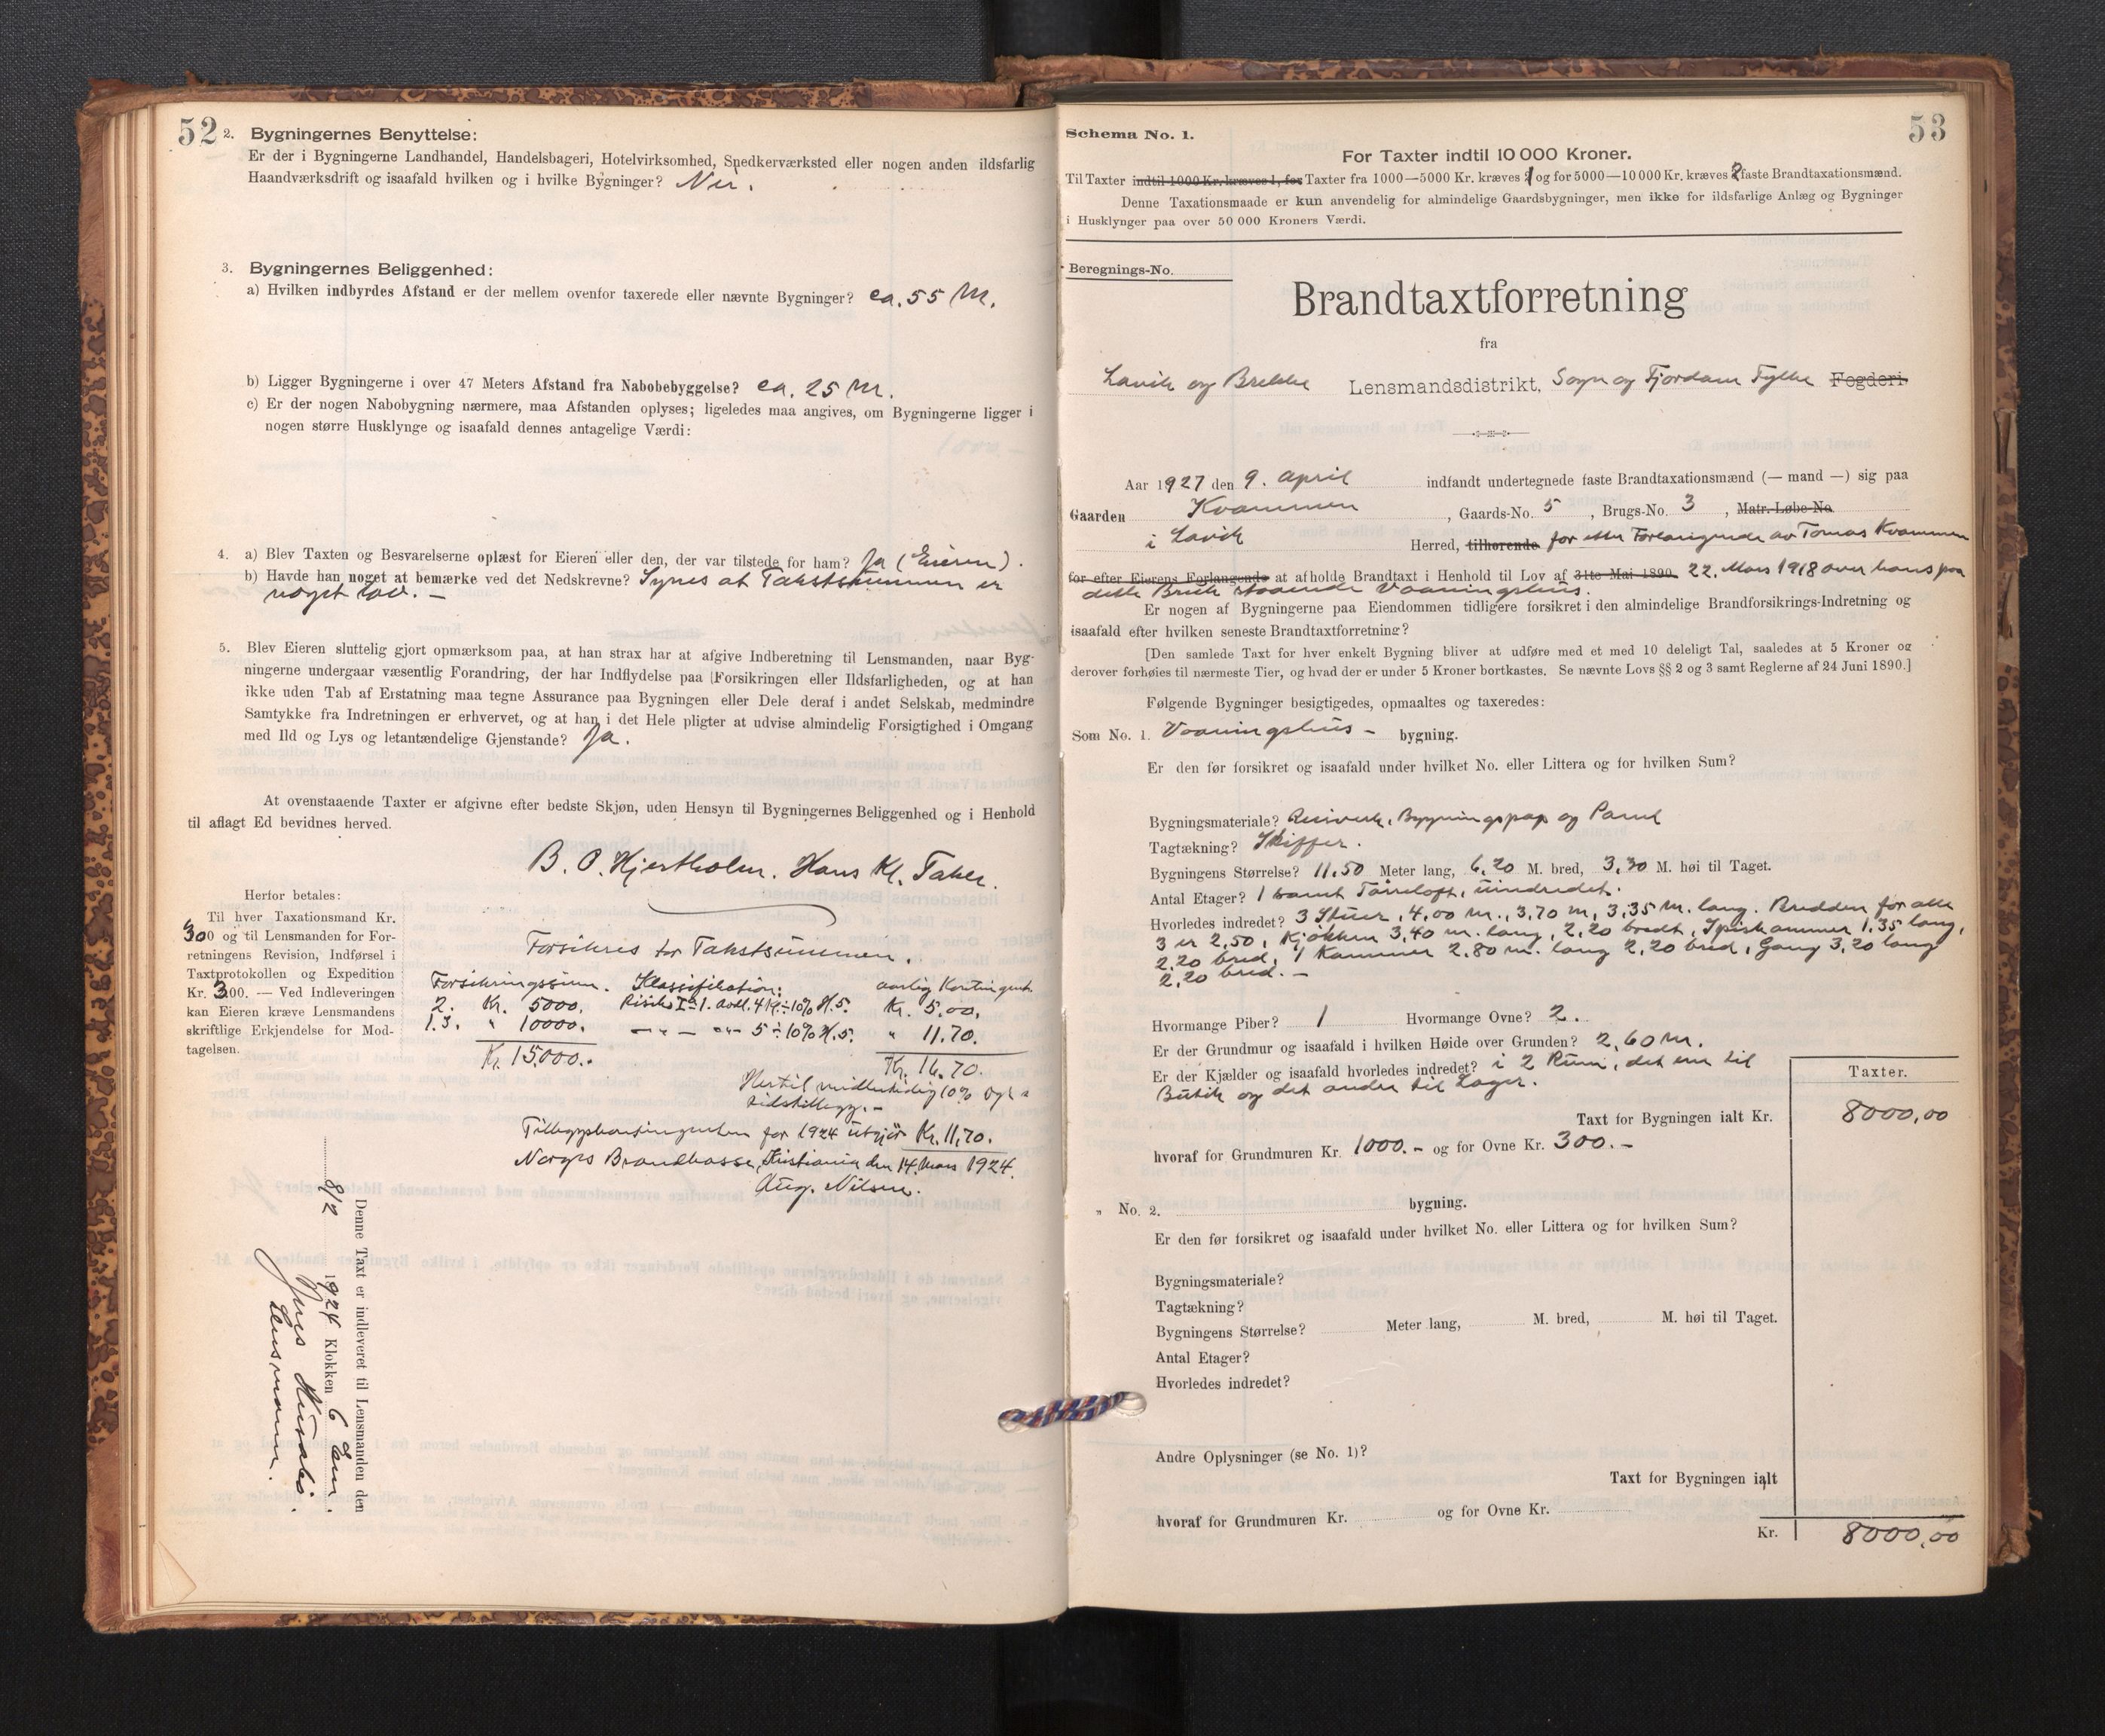 52
2. Bygningernes Benyttelse:
Er der i Bygningerne Landhandel, Handelsbageri, Hotelvirksomhed, Snedkerværksted eller nogen anden ildsfarlig
Haandværksdrift og isaafald hvilken og i hvilke Bygninger? Nei.
3. Bygningernes Beliggenhed:
a) Hvilken indbyrdes Afstand er der mellem ovenfor taxerede eller nævnte Bygninger? ca. 55 M.
b) Ligger Bygningerne i over 47 Meters Afstand fra Nabobebyggelse? ca. 25 M.
c) Er der nogen Nabobygning nærmere, maa Afstanden oplyses; ligeledes maa angives, om Bygningerne ligger i
nogen større Husklynge og isaafald dennes antagelige Værdi:
4. a) Blev Taxten og Besvarelserne oplæst for Eieren eller den, der var tilstede for ham? Ja (Eieren).
b) Havde han noget at bemærke ved det Nedskrevne? Synes at Takstsummen er
noget lav. -
5. Blev Eieren sluttelig gjort opmærksom paa, at han strax har at afgive Indberetning til Lensmanden, naar Byg-
ningerne undergaar væsentlig Forandring, der har Indflydelse paa Forsikringen eller Ildsfarligheden, og at han
ikke uden Tab af Erstatning maa tegne Assurance paa Bygningen eller Dele deraf i andet Selskab, medmindre
Samtykke fra Indretningen er erhvervet, og at han i det Hele pligter at udvise almindelig Forsigtighed i Omgang
med Ild og Lys og letantændelige Gjenstande? Ja.
At ovenstaaende Taxter er afgivne efter bedste Skjøn, uden Hensyn til Bygningernes Beliggenhed og i Henhold
til aflagt Ed bevidnes herved.
B. O. Hjertholm. Hans Kl. Taker.
Herfor betales:
Til hver Taxationsmand Kr.
300 og til Lensmanden for For-
retningens Revision, Indførsel i
Taxtprotokollen og Expedition
Kr. 300. — Ved Indleveringen
kan Eieren kræve Lensmandens
skriftlige Erkjendelse for Mod-
tagelsen.
Forsikres for Takstsummen.
Forsikringssum. Klassifikation: aarlig Kontingent
2. Kr. 5000. Risiko I a 1. avd. 4 Kl. ÷ 10% H.5. Kr. 5,00,
1.3. " 10000. — " — " 5 ÷ 10% H.5. " 11.70.
Kr. 15000.. Kr. 16.70.
Hertil midlertidig 10%
tidstillegg. -
Tilleggskontingenten for 1924 utgjør Kr. 11,70.
Norges Brandkasse, Kristiania den 14. Mars 1924.
Aug. Nilsen.
Denne Taxt er indleveret til Lensmanden den
8/2 1924 Klokken 6 Em.
Lensmannen.
53
Schema No. 1.
For Taxter indtil 10 000 Kroner.
Til Taxter indtil 1000 Kr. kræves 1, for Taxter fra 1000—5000 Kr. kræves 1 og for 5000—10 000 Kr. kræves 2 faste Brandtaxationsmænd.
Denne Taxationsmaade er kun anvendelig for almindelige Gaardsbygninger, men ikke for ildsfarlige Anlæg og Bygninger
i Husklynger paa over 50 000 Kroners Værdi.
Beregnings-No.
Brandtaxtforretning
fra
Lavik og Brekke Lensmandsdistrikt, Sogn og Fjordane Fylke Fogderi.
Aar 1927 den 9. april indfandt undertegnede faste Brandtaxationsmænd (— mand —) sig paa
Gaarden Kvammen, Gaards-No. 5, Brugs-No. 3, Matr.-Løbe-No
i Lavik Herred, tilhørende for efter Forlangende av Tomas Kvammen
for efter Eierens Forlangende at afholde Brandtaxt i Henhold til Lov af 31te Mai 1890. 22. Mars 1918 over hans paa
dette Bruk staaende Vaaningshus.
Er nogen af Bygningerne paa Eiendommen tidligere forsikret i den almindelige Brandforsikrings-Indretning og
isaafald efter hvilken seneste Brandtaxtforretning?
[Den samlede Taxt for hver enkelt Bygning bliver at udføre med et med 10 deleligt Tal, saaledes at 5 Kroner og
derover forhøies til nærmeste Tier, og hvad der er under 5 Kroner bortkastes. Se nævnte Lovs §§ 2 og 3 samt Reglerne af 24 Juni 1890.]
Følgende Bygninger besigtigedes, opmaaltes og taxeredes:
Som No. 1. Vaaningshus - bygning.
Er den før forsikret og isaafald under hvilket No. eller Littera og for hvilken Sum?
Bygningsmateriale? Reisverk, Bygningspap og Panel
Tagtækning? Skiffer.
Bygningens Størrelse? 11.50 Meter lang, 6,20 M. bred, 3,30 M. høi til Taget.
Antal Etager? 1 samt Tørreloft, uindredet.
Hvorledes indredet? 3 Stuer, 4,00 m., 3,70 m, 3,35 m. lang. Bredden for alle
3 er 2,50, Kjøkken 3,40 m. lang, 2,20 bredt, Spiskammer 1.35 lang,
2,20 bred, 1 Kammer 2.80 m. lang 2,20 bred, Gang 3,20 lang
2,20 bred. -
Hvormange Piber? 1 Hvormange Ovne? 2.
Er der Grundmur og isaafald i hvilken Høide over Grunden? 2,60 m.
Er der Kjælder og isaafald hvorledes indredet? i 2 Rum, det ene til
Butik og det andre til Lager.
Taxter.
Taxt for Bygningen ialt Kr. 8000,00
hvoraf for Grundmuren Kr. 1000.- og for Ovne Kr. 300.-
" No. 2. bygning.
Er den før forsikret og isaafald under hvilket No. eller Littera og for hvilken Sum?
Bygningsmateriale?
Tagtækning?
Bygningens Størrelse? Meter lang, M. bred, M. høi til Taget.
Antal Etager?
Hvorledes indredet?
Andre Oplysninger (se No. 1)?
Taxt for Bygningen ialt
hvoraf for Grundmuren Kr. og for Ovne Kr.
Kr. 8000,00